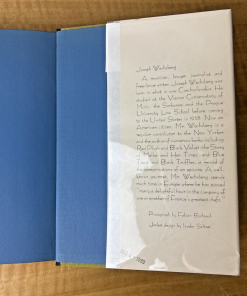 Joseph Wechsberg
A musician, lawyer, journalist and
free-lance writer, Joseph Wechsberg was
born in what is now Czechoslovakia. He
studied at the Vienna Conservatory of
Music, the Sorbonne and the Prague
University Law School before coming
to the United States in 1938. Now an
American citizen, Mr. Wechsberg is a
regular contributor to The New Yorker
and the author of numerous books including
Red Plush and Black Velvet: the Story
of Melba and Her Times, and Blue
Trout and Black Truffles, a record of
the peregrinations of an epicure. As a
journalist, Mr. Wechsberg spends
much time in Europe where he has passed
many a delightful hour in the company of
one or another of France's greatest chefs.
Photograph by Fabian Bachrach
Jacket design by